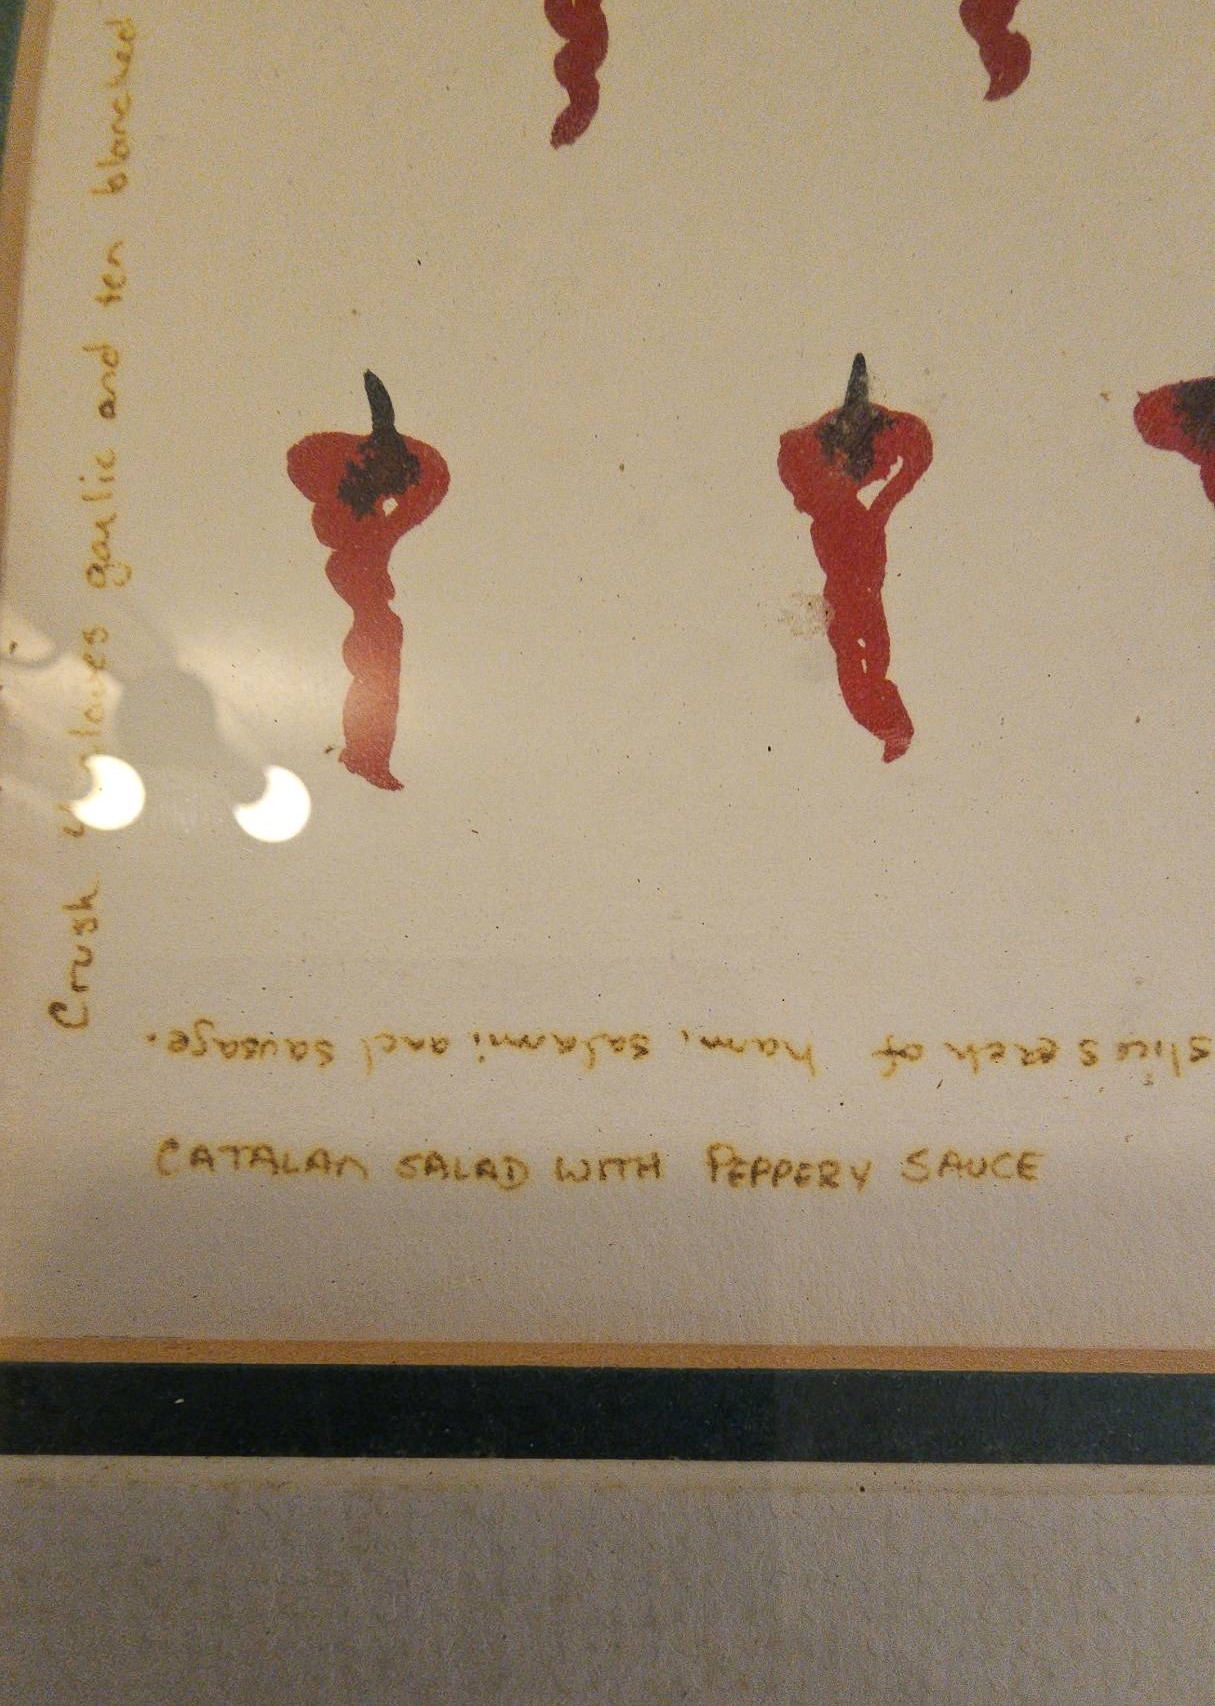 Crush 4 cloves garlic and ten blanched
slices each of ham, salami and sausage.
CATALAN SALAD WITH PEPPERY SAUCE